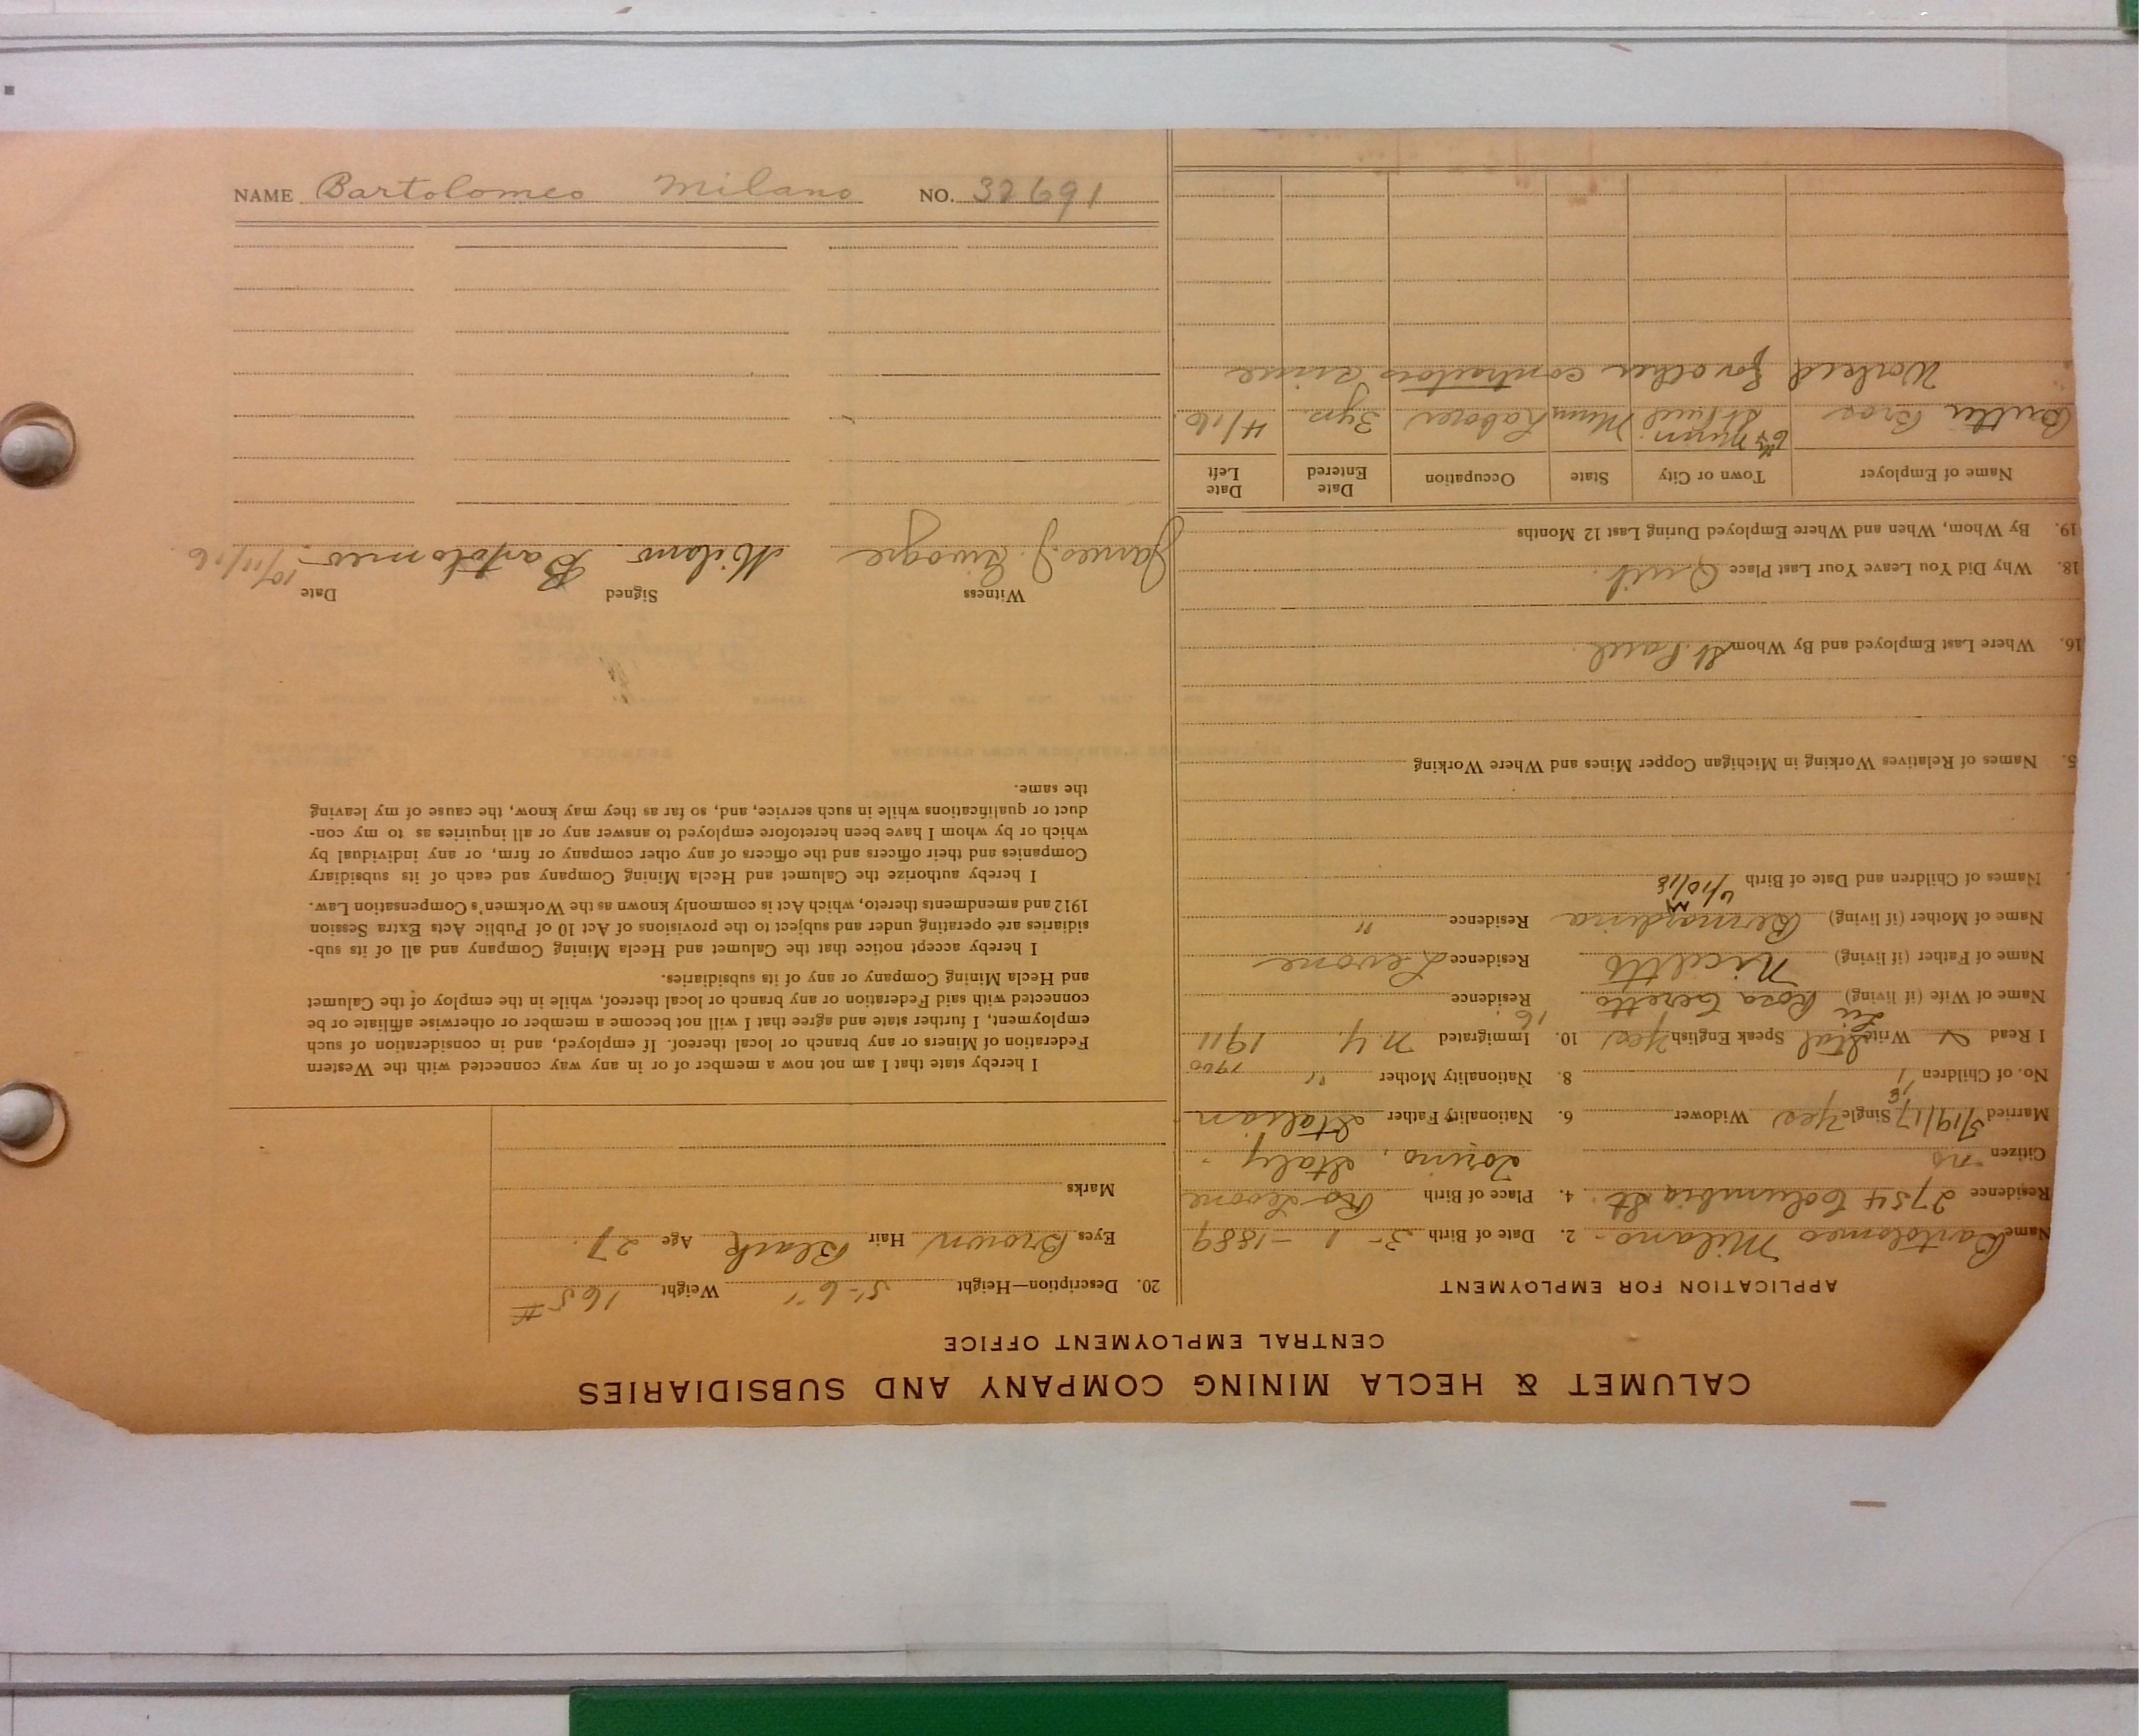 CALUMET & HECLA MINING COMPANY AND SUBSIDIARIES
CENTRAL EMPLOYMENT OFFICE
APPLICATION FOR EMPLOYMENT
Name Bartolomeo Milano - 2. Date of Birth 3 - 1 - 1889
Residence 2754 Columbia St. 4. Place of Birth Levone
Citizen no Torino, Italy
Married 5/19/17 Single Yes Widower 6. Nationality Father Italian
No. of Children 1 8. Nationality Mother " 1900
I Read Write Ital Speak English Yes 10. Immigrated N.Y. 1911
Name of Wife (if living) Rosa Ceretto Residence
Name of Father (if living) Residence Levone
Name of Mother (if living) Bernardina Residence "
Names of Children and Date of Birth 6/10/18
5. Names of Relatives Working in Michigan Copper Mines and Where Working
16. Where Last Employed and By Whom St. Paul
18. Why Did You Leave Your Last Place Quit.
19. By Whom, When and Where Employed During Last 12 Months
Name of Employer Town or City State Occupation Date Entered Date Left
Butler Bros St Paul Minn. Minn Laborer 3 yrs. 4/16
Worked for other contractors since
20. Description—Height 5'-6" Weight 165 #
Eyes Brown Hair Black Age 27.
Marks
I hereby state that I am not now a member of or in any way connected with the Western
Federation of Miners or any branch or local thereof. If employed, and in consideration of such
employment, I further state and agree that I will not become a member or otherwise affiliate or be
connected with said Federation or any branch or local thereof, while in the employ of the Calumet
and Hecla Mining Company or any of its subsidiaries.
I hereby accept notice that the Calumet and Hecla Mining Company and all of its sub-
sidiaries are operating under and subject to the provisions of Act 10 of Public Acts Extra Session
1912 and amendments thereto, which Act is commonly known as the Workmen's Compensation Law.
I hereby authorize the Calumet and Hecla Mining Company and each of its subsidiary
Companies and their officers and the officers of any other company or firm, or any individual by
which or by whom I have been heretofore employed to answer any or all inquiries as to my con-
duct or qualifications while in such service, and, so far as they may know, the cause of my leaving
the same.
Witness Signed Date
James J. Milano Bartolomeo 10/11/16
NAME Bartolomeo Milano NO. 32691